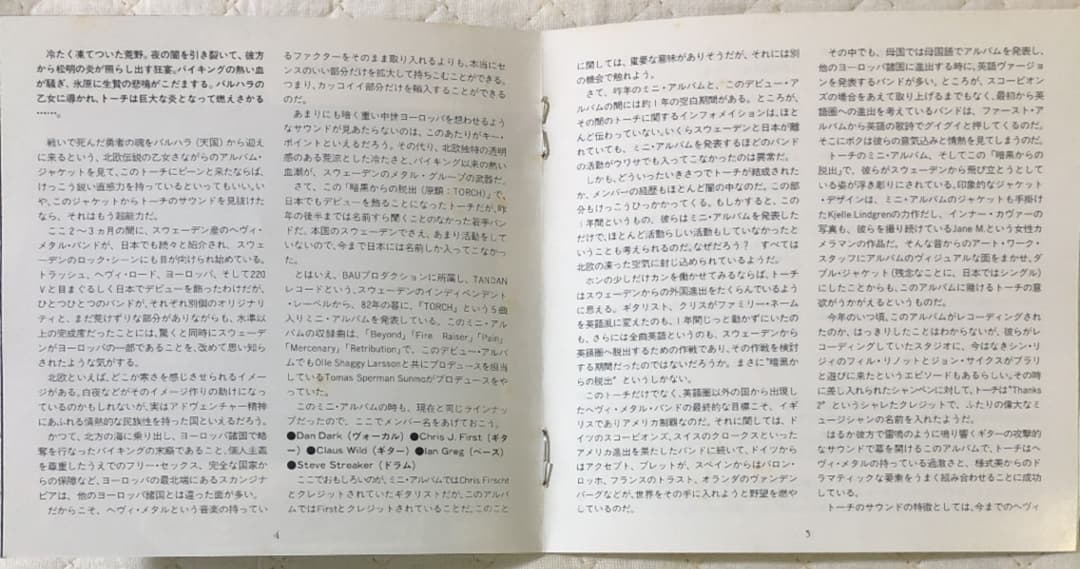 冷たく凍てついた荒野。夜の闇を引き裂いて、彼方
から松明の炎が照らし出す狂宴。バイキングの熱い血
が騒ぎ、氷原に生贄の悲鳴がこだまする。バルハラの
乙女に導かれ、トーチは巨大な炎となって燃えさかる
……。
戦いで死んだ勇者の魂をバルハラ（天国）から迎え
に来るという、北欧伝説の乙女さながらのアルバム・
ジャケットを見て、このトーチにピーンと来たならば、
けっこう鋭い直感力を持っているといってもいい。い
や、このジャケットからトーチのサウンドを見抜けた
なら、それはもう超能力だ。
ここ2〜3ヵ月の間に、スウェーデン産のヘヴィ・
メタル・バンドが、日本でも続々と紹介され、スウェ
ーデンのロック・シーンにも目が向けられ始めている。
トラッシュ、ヘヴィ・ロード、ヨーロッパ、そして220
Vと目まぐるしく日本でデビューを飾ったわけだが、
ひとつひとつのバンドが、それぞれ別個のオリジナリ
ティと、まだ荒けずりな部分がありながらも、水準以
上の完成度だったことには、驚くと同時にスウェーデ
ンがヨーロッパの一部であることを、改めて思い知ら
されたような気がする。
北欧といえば、どこか寒さを感じさせられるイメー
ジがある。白夜などがそのイメージ作りの助けになっ
ているのかもしれないが、実はアドヴェンチャー精神
にあふれる情熱的な民族性を持った国といえるだろう。
かつて、北方の海に乗り出し、ヨーロッパ諸国で略
奪を行なったバイキングの末裔であること、個人主義
を尊重したうえでのフリー・セックス、完全な国家か
らの保障など、ヨーロッパの最北端にあるスカンジナ
ビアは、他のヨーロッパ諸国とは違った面が多い。
だからこそ、ヘヴィ・メタルという音楽の持ってい
るファクターをそのまま取り入れるよりも、本当にセ
ンスのいい部分だけを拡大して持ちこむことができる。
つまり、カッコイイ部分だけを輸入することができる
のだ。
あまりにも暗く重い中世ヨーロッパを想わせるよう
なサウンドが見あたらないのは、このあたりがキー・
ポイントといえるだろう。その代り、北欧独特の透明
感のある荒涼とした冷たさと、バイキング以来の熱い
血潮が、スウェーデンのメタル・グループの武器だ。
さて、この「暗黒からの脱出（原題：TORCH）」で、
日本でもデビューを飾ることになったトーチだが、昨
年の後半までは名前すら聞くことのなかった若手バン
ドだ。本国のスウェーデンでさえ、あまり活動をして
いないので、今まで日本には名前しか入ってこなかっ
た。
とはいえ、BAUプロダクションに所属し、TANDAN
レコードという、スウェーデンのインディペンデント
・レーベルから、82年の暮に、「TORCH」という5曲
入りミニ・アルバムを発表している。このミニ・アル
バムの収録曲は、「Beyond」「Fire Raiser」「Pain」
「Mercenary」「Retribution」で、このデビュー・アル
バムでもOlle Shaggy Larssonと共にプロデュースを担当
しているTomas Sperman Sunmoがプロデュースをや
っていた。
このミニ・アルバムの時も、現在と同じラインナッ
プだったので、ここでメンバー名をあげておこう。
●Dan Dark（ヴォーカル） ●Chris J. First（ギタ
ー） ●Claus Wild（ギター） ●Ian Greg（ベース）
●Steve Streaker（ドラム）
ここでおもしろいのが、ミニ・アルバムではChris Firscht
とクレジットされていたギタリストだが、このアルバ
ムではFirstとクレジットされていることだ。このこと
4
に関しては、重要な意味がありそうだが、それには別
の機会で触れよう。
さて、昨年のミニ・アルバムと、このデビュー・ア
ルバムの間には約1年の空白期間がある。ところが、
その間のトーチに関するインフォメイションは、ほと
んど伝わっていない。いくらスウェーデンと日本が離
れていても、ミニ・アルバムを発表するほどのバンド
の活動がウワサでも入ってこなかったのは異常だ。
しかも、どういったいきさつでトーチが結成された
か、メンバーの経歴もほとんど闇の中なのだ。この部
分もけっこうひっかかってくる。もしかすると、この
1年間というもの、彼らはミニ・アルバムを発表した
だけで、ほとんど活動らしい活動もしていなかったと
いうことも考えられるのだ。なぜだろう？ すべては
北欧の凍った空気に封じ込められているようだ。
ホンの少しだけカンを働かせてみるならば、トーチ
はスウェーデンからの外国進出をたくらんでいるよう
に思える。ギタリスト、クリスがファミリー・ネーム
を英語風に変えたのも、1年間じっと動かずにいたの
も、さらには全曲英語というのも、スウェーデンから
英語圏へ脱出するための作戦であり、その作戦を検討
する期間だったのではないだろうか。まさに“暗黒か
らの脱出”というしかない。
このトーチだけでなく、英語圏以外の国から出現し
たヘヴィ・メタル・バンドの最終的な目標こそ、イギ
リスでありアメリカ制覇なのだ。それに関しては、ド
イツのスコーピオンズ、スイスのクロークスといった
アメリカ進出を果たしたバンドに続いて、ドイツから
はアクセプト、ブレットが、スペインからはバロン・
ロッホ、フランスのトラスト、オランダのヴァンデン
バーグなどが、世界をその手に入れようと野望を燃や
しているのだ。
その中でも、母国では母国語でアルバムを発表し、
他のヨーロッパ諸国に進出する時に、英語ヴァージョ
ンを発表するバンドが多い。ところが、スコーピオン
ズの場合をあえて取り上げるまでもなく、最初から英
語圏への進出を考えているバンドは、ファースト・ア
ルバムから英語の歌詩でグイグイと押してくるのだ。
そこにボクは彼らの意気込みと情熱を見てしまうのだ。
トーチのミニ・アルバム、そしてこの「暗黒からの
脱出」で、彼らがスウェーデンから飛び立とうとして
いる姿が浮き彫りにされている。印象的なジャケット
・デザインは、ミニ・アルバムのジャケットも手掛け
たKjelle Lindgrenの力作だし、インナー・カヴァーの
写真も、彼らを撮り続けているJane M.という女性カ
メラマンの作品だ。そんな昔からのアート・ワーク・
スタッフにアルバムのヴィジュアルな面をまかせ、ダ
ブル・ジャケット（残念なことに、日本ではシングル）
にしたことからも、このアルバムに賭けるトーチの意
欲がうかがえるというものだ。
今年のいつ頃、このアルバムがレコーディングされ
たのか、はっきりしたことはわからないが、彼らがレ
コーディングしていたスタジオに、今はなきシン・リ
ジィのフィル・リノットとジョン・サイクスがブラリ
と遊びに来たというエピソードもあるらしい。その時
に差し入れられたシャンペンに対して、トーチは“Thanks
2”というシャレたクレジットで、ふたりの偉大なミ
ュージシャンの名前を入れたようだ。
はるか彼方で雷鳴のように鳴り響くギターの攻撃的
なサウンドで幕を開けるこのアルバムで、トーチはヘ
ヴィ・メタルの持っている過激さと、様式美からのド
ラマティックな要素をうまく組み合わせることに成功
している。
トーチのサウンドの特徴としては、今までのヘヴィ
5